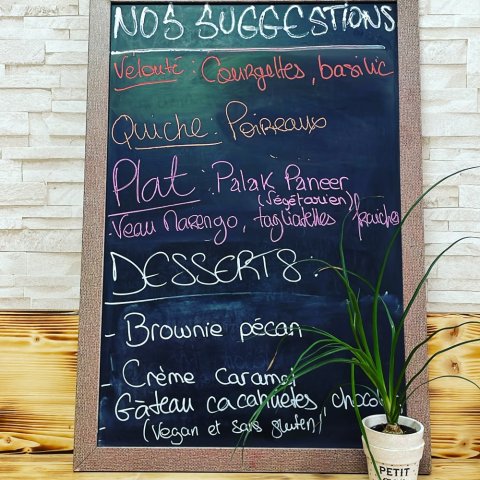 NOS SUGGESTIONS
Velouté : Courgettes, basilic
Quiche : Poireaux
Plat : Palak Paneer
(végétarien)
Veau Marengo, tagliatelles fraiches
DESSERTS :
- Brownie pécan
- Crème Caramel
Gâteau cacahuètes, choco
(Vegan et sans gluten)
PETIT